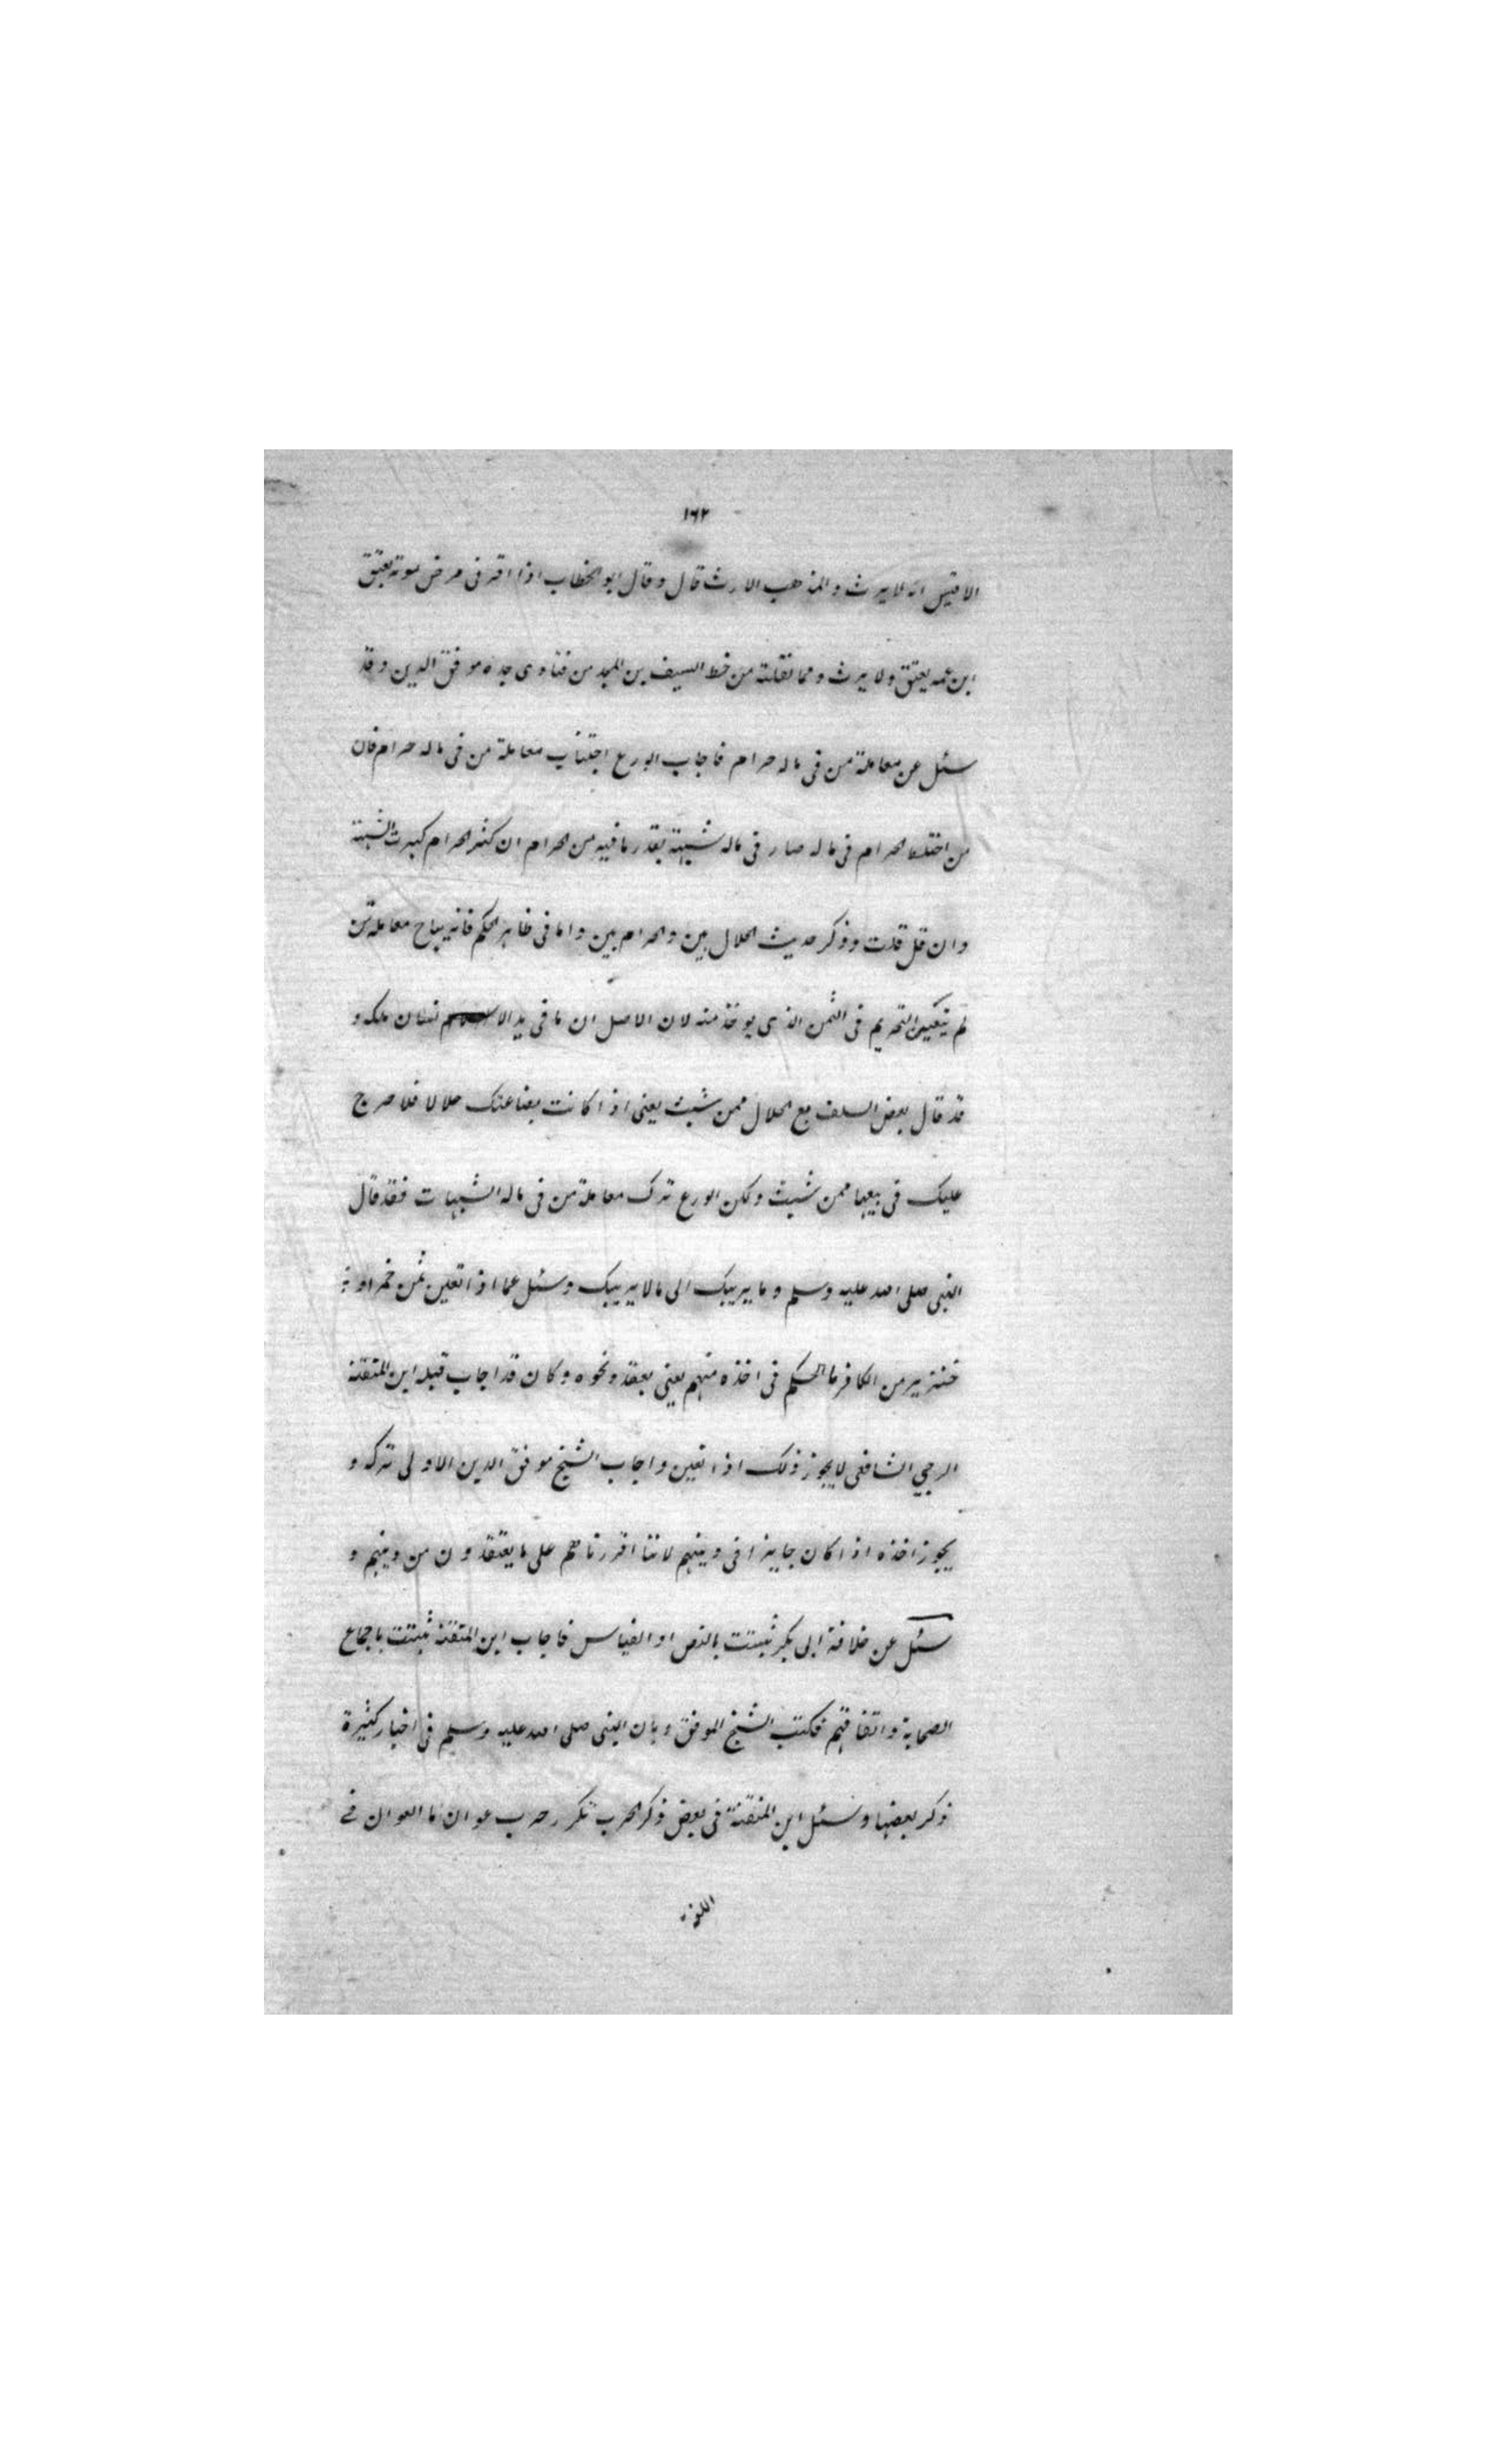 ١٦٢
الاقيس انه لا يرث والمذهب الارث قال وقال ابو الخطاب اذا اقر فى مرض موته بعتق
ابن عمه يعتق ولا يرث ومما نقلته من خط السيف بن المجد من فتاوى جده موفق الدين وقد
سئل عن معاملة من فى ماله حرام فاجاب الورع اجتناب معاملة من فى ماله حرام فان
من اختلط الحرام فى ماله صار فى ماله شبهة بقدر ما فيه من الحرام ان كثر الحرام كبرت الشبهة
وان قل قلت وذكر حديث الحلال بين والحرام بين واما فى ظاهر الحكم فانه يباح معاملة من
لم يتعين التحريم فى الثمن الذى يوخذ منه لان الاصل ان ما فى يد الانسان ملكه و
قد قال بعض السلف بع الحلال ممن شئت يعنى اذا كانت بضاعتك حلالا فلا حرج
عليك فى بيعها ممن شئت ولكن الورع ترك معاملة من فى ماله الشبهات فقد قال
النبى صلى الله عليه وسلم دع ما يريبك الى ما لا يريبك وسئل عما اذا تعين ثمن خمر او
خنزير من الكافر ما الحكم فى اخذه منهم يعنى بعقد ونحوه وكان قد اجاب قبله ابن المتقنة
الرحبي الشافعى لا يجوز ذلك اذا تعين واجاب الشيخ موفق الدين الاولى تركه و
يجوز اخذه اذا كان جايزا فى دينهم لاننا اقررناهم على ما يعتقدون من دينهم و
سئل عن خلافة ابى بكر ثبتت بالنص او القياس فاجاب ابن المتقنة ثبتت باجماع
الصحابة واتفاقهم فكتب الشيخ الموفق وبان النبى صلى الله عليه وسلم فى اخبار كثيرة
ذكر بعضها وسئل ابن المتقنة فى بعض ذكر الحرب تكرر حرب عوان ما العوان فے
اللغة